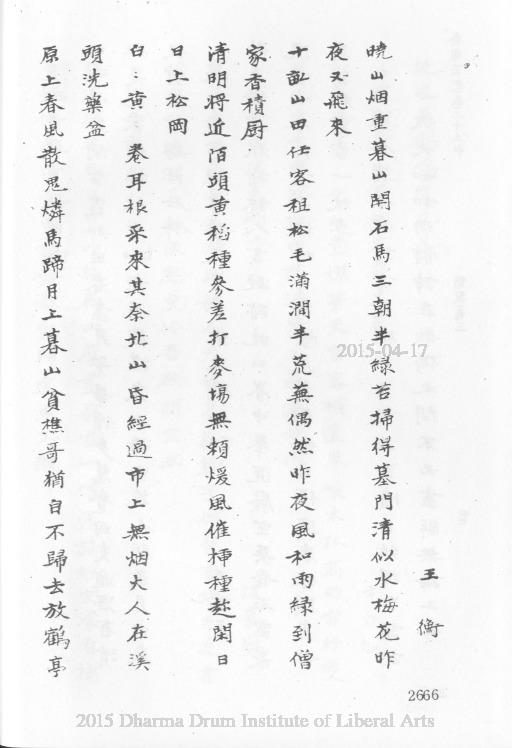 王衡
曉山烟重暮山開石馬三朝半綠苔掃得墓門清似水梅花昨
夜又飛來
十畝山田任客租松毛滿澗半荒蕪偶然昨夜風和雨綠到僧
家香積厨
清明将近陌頭黄稻種參差打麥塲無賴煖風催揷種趂閑日
日上松岡
白：黄：卷耳根采來其奈北山昏經過市上無烟火人在溪
頭洗藥盆
原上春風散鬼燐馬蹄月上暮山貧樵哥猶自不歸去放鶴亭
2666
2015-04-17
2015 Dharma Drum Institute of Liberal Arts